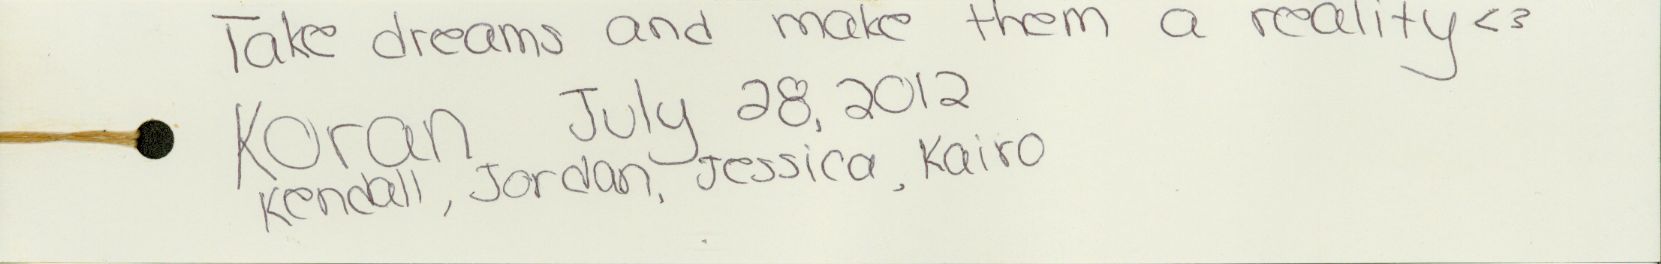 Take dreams and make them a reality <3
Koran July 28, 2012
Kendall, Jordan, Jessica, Kairo